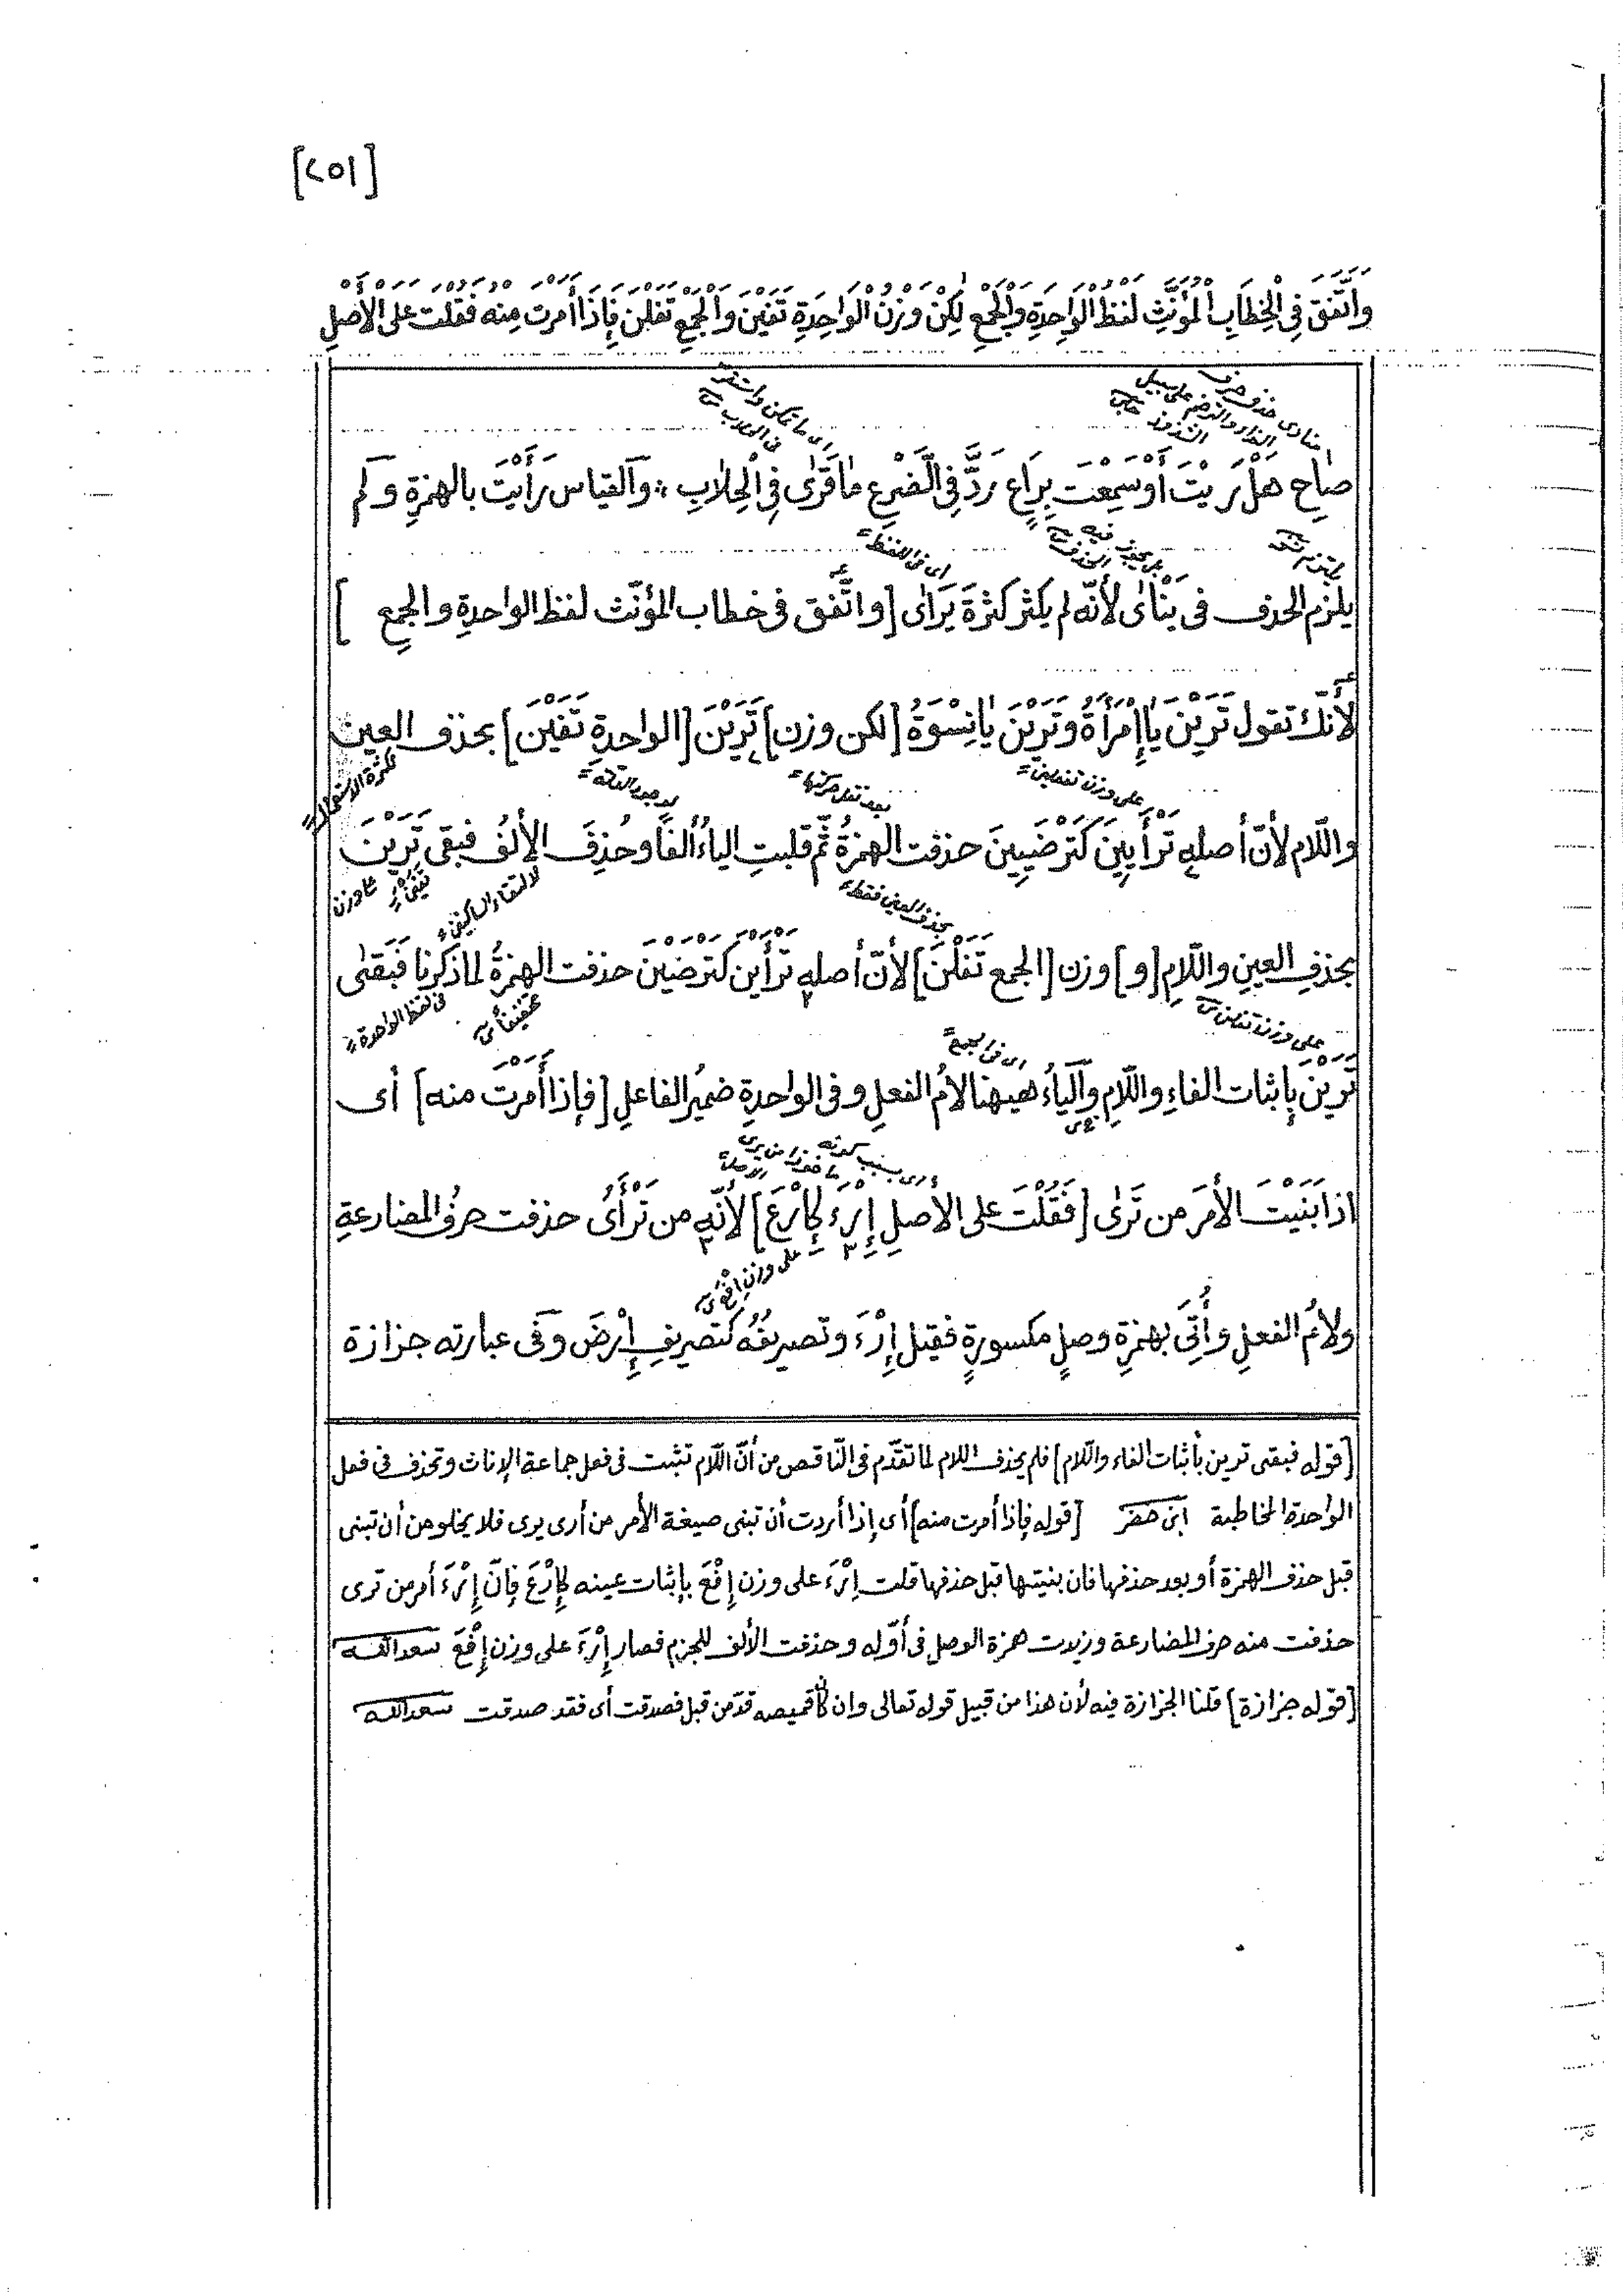 [٢٥١]
وَاتَّفَقَ فِي الْخِطَابِ الْمُؤَنَّثِ لَفْظُ الْوَاحِدَةِ وَالْجَمْعِ لٰكِنْ وَزْنُ الْوَاحِدَةِ تَفَيْنَ وَالْجَمْعِ تَفَلْنَ فَإِذَا أَمَرْتَ مِنْهُ فَقُلْتَ عَلَى الْأَصْلِ
صٰاحِ هَلْ رَيْتَ أَوْ سَمِعْتَ بِرَاعٍ رَدَّ فِي الضَّرْعِ مٰا قَرٰى فِي الْحِلٰابِ ؞ وَالقياس رَأَيْتَ بالهمزةِ وَلم
يلزم الحذف فى يَنْاٰى لأنّه لم يكثر كثرةَ يَرَاٰى [واتَّفق فى خطاب المؤنّث لفظ الواحدةِ والجمعِ]
اى فى اللفظ
لأَنّك تقول تَرَيْنَ يٰا إِمْرَأَةُ وَتَرَيْنَ يٰا نِسْوَةُ [لكن وزن] تَرَيْنَ [الواحدةِ تَفَيْنَ] بحذف العين
على وزن تفعلين بعد نقل حركتها لكثرة الاستعمال
واللّام لأنّ أصله تَرْأَيِينَ كَتَرْضَيِينَ حذفت الهمزةُ ثمّ قلبتِ الياءُ ألفًا وحُذِفَ الألفُ فبقى تَرَيْنَ
بحذف العين فقط لالتقاء الساكنين
بحذفِ العينِ واللّامِ [و] وزن [الجمع تَفَلْنَ] لأنّ أصله تَرْأَيْنَ كَتَرْضَيْنَ حذفت الهمزةُ لما ذكرنا فَبَقٰى
اى فى الجمع تخفيفًا فى لفظ الواحدة
تَرَيْنَ بإثبات الفاءِ واللّامِ وَاليٰاءُ هٰيهنا لامُ الفعلِ وفى الواحدةِ ضميرُ الفاعلِ [فإذا أَمَرْتَ منه] أى
اذا بَنَيْتَ الأمرَ من تَرٰى [فَقُلْتَ على الاصلِ إِرْءَ كَإِرْعَ] لأنّه من تَرْأَىُ حذفت حرفُ المضارعةِ
على وزن إفع
ولامُ الفعلِ وأُتِىَ بهمزةِ وصلٍ مكسورةٍ فقيل إِرْءَ وتصريفُهُ كتصريفِ إِرْضَ وفى عبارته جزازة
[قوله فبقى ترين بأثبات الفاء واللّام] فلم يحذف اللام لما تقدّم فى النّاقص من أنّ اللّام تثبت فى فعل جماعة الإناث وتحذف فى فعل
الواحدة المخاطبة [قوله فإذا أمرت منه] أى إذا أردت أن تبنى صيغة الأمر من أرى يرى فلا يخلو من أن تبنى
قبل حذف الهمزة أو بعد حذفها فان بنيتها قبل حذفها قلت إِرْءَ على وزن إِفْعَ بإثبات عينه كإِرْعَ فإنّ إِرْءَ أمر من ترى
حذفت منه حرف المضارعة وزيدت همزة الوصل فى أوّله وحذفت الألف للجزم فصار إِرْءَ على وزن إِفْعَ سعد الله
[قوله جزازة] قلنا الجزازة فيه لأن هذا من قبيل قوله تعالى وان كان قميصه قدّ من قبل فصدقت أى فقد صدقت سعد الله